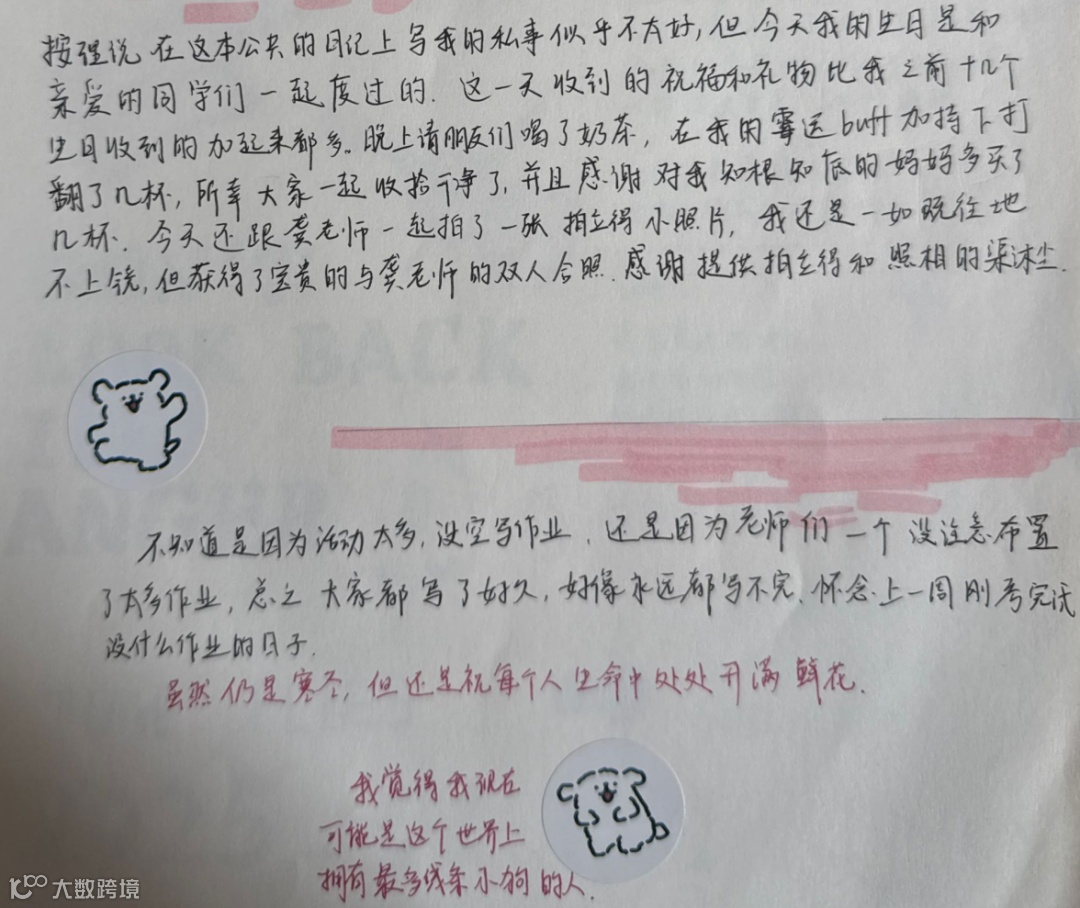 按理说在这本公共的日记上写我的私事似乎不太好，但今天我的生日是和
亲爱的同学们一起度过的．这一天收到的祝福和礼物比我之前十几个
生日收到的加起来都多。晚上请朋友们喝了奶茶，在我的霉运buff加持下打
翻了几杯，所幸大家一起收拾干净了，并且感谢对我知根知底的妈妈多买了
几杯．今天还跟龚老师一起拍了一张拍立得小照片，我还是一如既往地
不上镜，但获得了宝贵的与龚老师的双人合照．感谢提供拍立得和照相的渠沐尘．
不知道是因为活动太多，没空写作业，还是因为老师们一个没注意布置
了太多作业，总之大家都写了好久，好像永远都写不完．怀念上一周刚考完试
没什么作业的日子．
虽然仍是寒冬，但还是祝每个人生命中处处开满鲜花．
我觉得我现在
可能是这个世界上
拥有最多线条小狗的人．
大数跨境